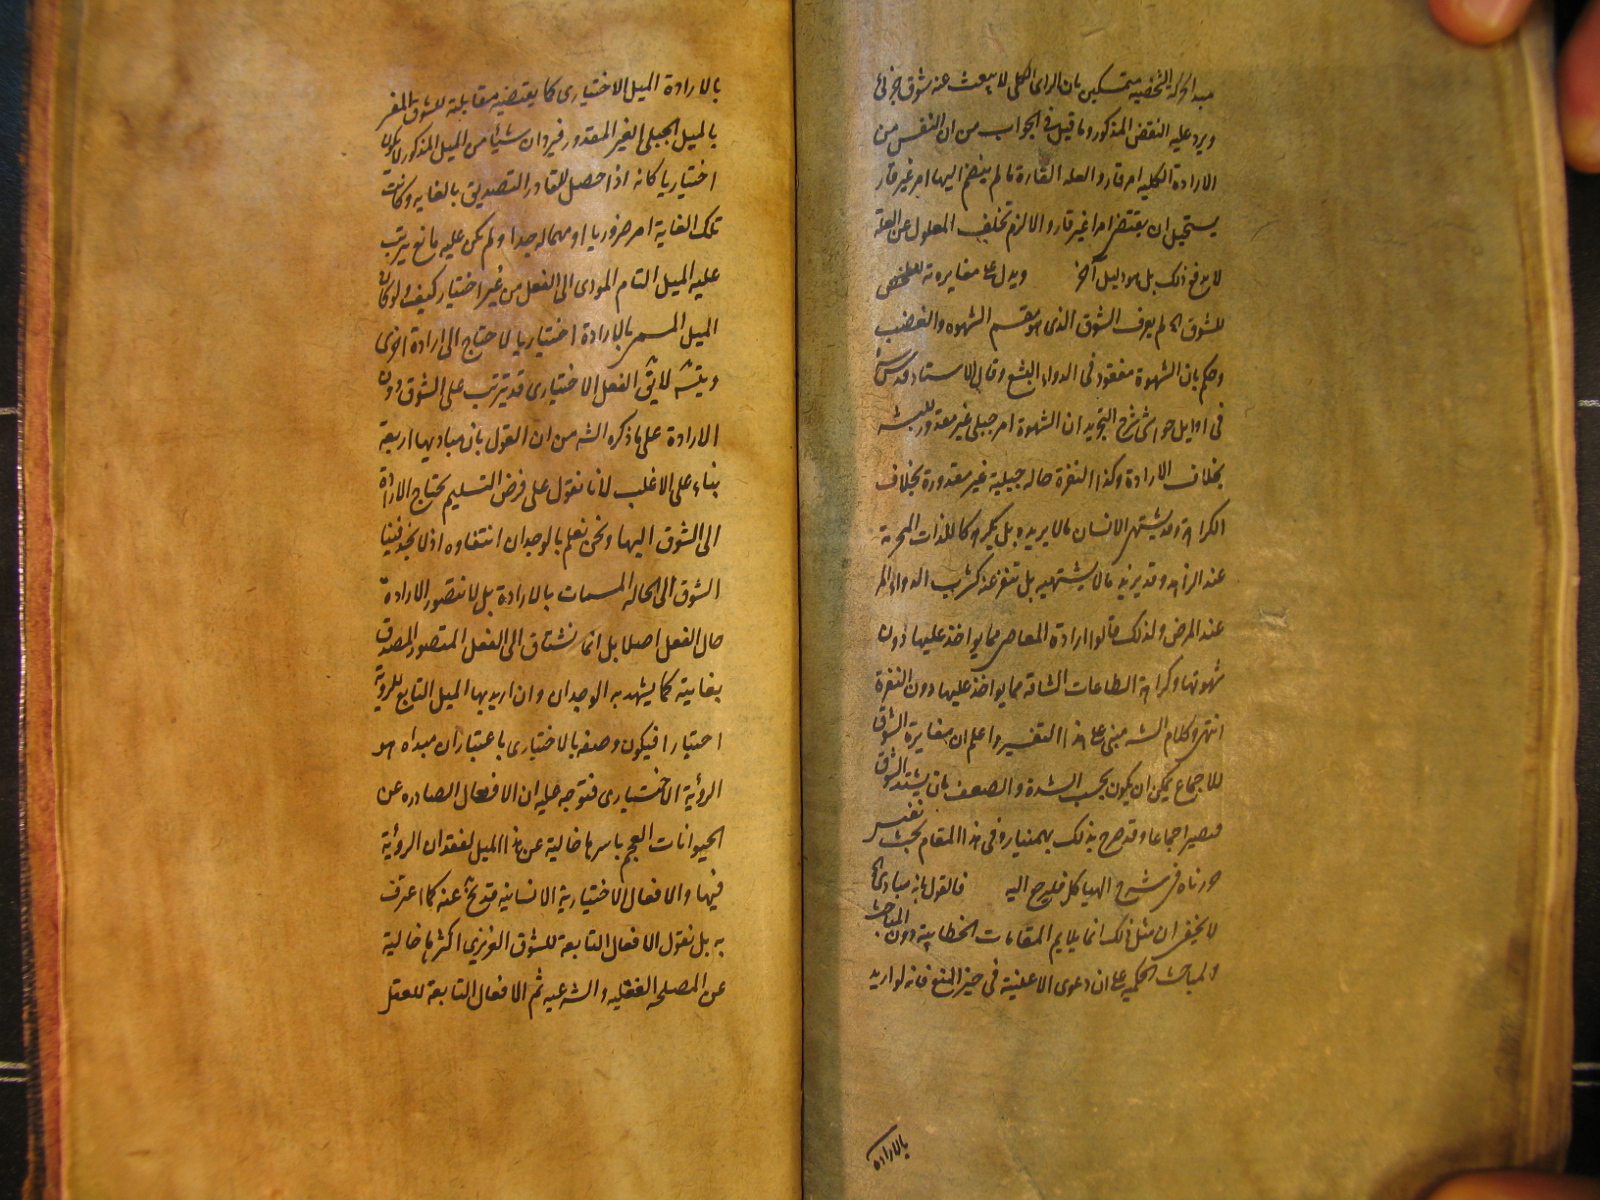 مبدا الحركة الشخصية متمسكين بان الراى الكلى لا ينبعث عنه شوق جزئى
ويرد عليه النقض المذكور وما قيل فى الجواب من ان النفس من
الارادة الكلية امر قار والعلة القارة ما لم ينضم اليها امر غير قار
يستحيل ان يقتضى امرا غير قار والا لزم تخلف المعلول عن العلة
لا يدفع ذلك بل هو دليل آخر ويدل على مغايرته
للشوق انه لم يعرف الشوق الذى هو مقسم الشهوه والغضب
وحكم بان الشهوة مفقود فى الدواء البشع وقال الاستاد قدس سره
فى اوايل حواشى شرح التجريد ان الشهوة امر جبلى غير مقدور للبشر
بخلاف الارادة وكذا النفرة حاله جبلية غير مقدورة بخلاف
الكراهة وقد يشتهى الانسان ما لا يريده بل يكرهه كاللذات المحرمة
عند الزاهد وقد يريد ما لا يشتهيه بل تنفر عنه كشرب الدواء المر
عند المرض ولذلك قالوا ارادة المعاصى مما يواخذ عليها دون
شهوتها وكراهة الطاعات الشاقه مما يواخذ عليها دون النفرة
انتهى وكلام الشه مبنى على هذا التفسير واعلم ان مغايرة الشوق
للاجماع يمكن ان يكون بحسب الشدة والضعف بان يشتد الشوق
فتصير اجماعا وقد صرح بذلك بهمنيار وفى هذا المقام بحث نفيس
حررناه فى شرح الهياكل فليرجع اليه فالقول بانه مبادى
لا يخفى ان مثل ذلك انما يلايم المقامات الخطابية دون المباحث
والمباحث الحكمية على ان دعوى الاغلبية فى حيز المنع فانه لو اريد
بالارادة
بالارادة الميل الاختيارى كما يقتضيه مقابلة للشوق المفسر
بالميل الجبلى الغير المقدور فيرد ان شيئا من الميل المذكور لا يكون
اختياريا كانه اذا حصل للقادر التصديق بالغايه وكانت
تلك الغاية امر ضروريا او مهما له جدا ولم يكن عليه مانع يترتب
عليه الميل التام المودى الى الفعل من غير اختيار كيف ولو كان
الميل المسمى بالارادة اختياريا لاحتاج الى ارادة اخرى
ويتسه لا يق الفعل الاختيارى قد يترتب على الشوق دون
الارادة على ما ذكره الشه من ان القول بان مباديها اربعة
بناء على الاغلب لانا نقول على فرض التسليم يحتاج الارادة
الى الشوق اليها ونحن نعلم بالوجدان انتفاوه اذ لا نجد فينا
الشوق الى الحاله المسمات بالارادة بل لا نتصور الارادة
حال الفعل اصلا بل انما نشتاق الى الفعل المتصور المصدق
بغايته كما يشهد به الوجدان وان اريد بها الميل التابع للروية
اختيارا فيكون وصفه بالاختيارى باعتبار ان مبداه هو
الروية الاختيارى فتوجه عليه ان الافعال الصادره عن
الحيوانات العجم باسرها خالية عن هذا الميل لفقدان الروية
فيها والافعال الاختيارية الانسانيه قد يخ عنه كما اعترف
به بل نقول الافعال التابعة للشوق الغريزى اكثرها خالية
عن المصلحه العقليه والشرعيه ثم الافعال التابعة للعقل